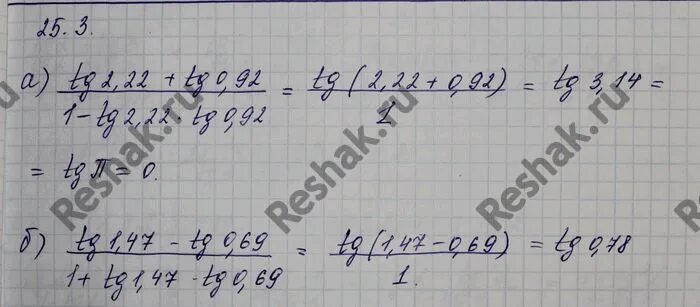 25.3.
а) (tg 2,22 + tg 0,92) / (1 - tg 2,22 · tg 0,92) = tg(2,22 + 0,92) / 1 = tg 3,14 =
= tg π = 0.
б) (tg 1,47 - tg 0,69) / (1 + tg 1,47 · tg 0,69) = tg(1,47 - 0,69) / 1. = tg 0,78
Reshak.ru
Reshak.ru
Reshak.ru
Reshak.ru